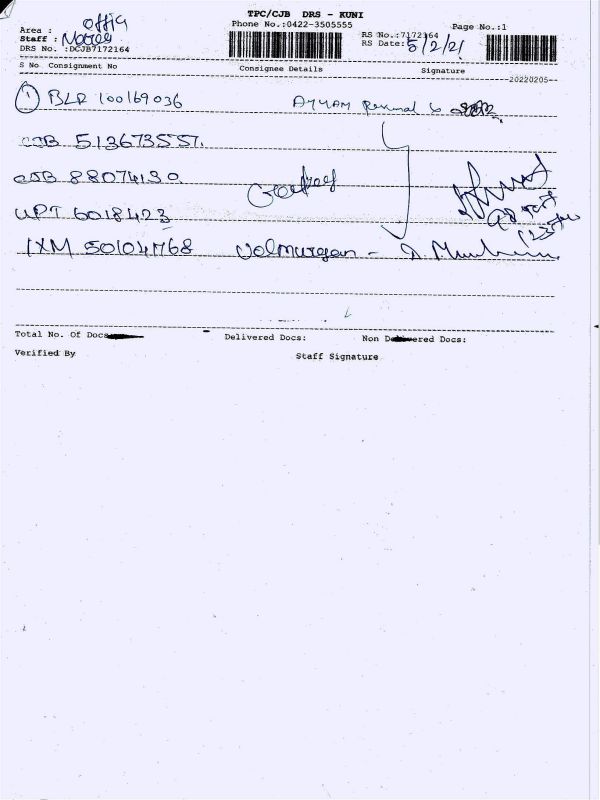 TPC/CJB DRS - KUNI
Phone No.:0422-3505555
Page No.:1
Area :
Staff :
DRS No. :DCJB7172164
RS No.:7172164
RS Date: 5/2/21
S No Consignment No Consignee Details Signature
20220205
1 BLR 100169036
CJB 513673557.
CJB 88074130
UPT 6018423
IXM 50104768 Velmurgan -
Total No. Of Docs Delivered Docs: Non Delivered Docs:
Verified By Staff Signature